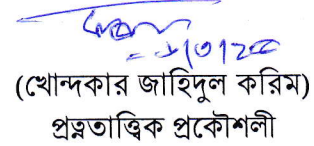 (খোন্দকার জাহিদুল করিম)
প্রত্নতাত্ত্বিক প্রকৌশলী